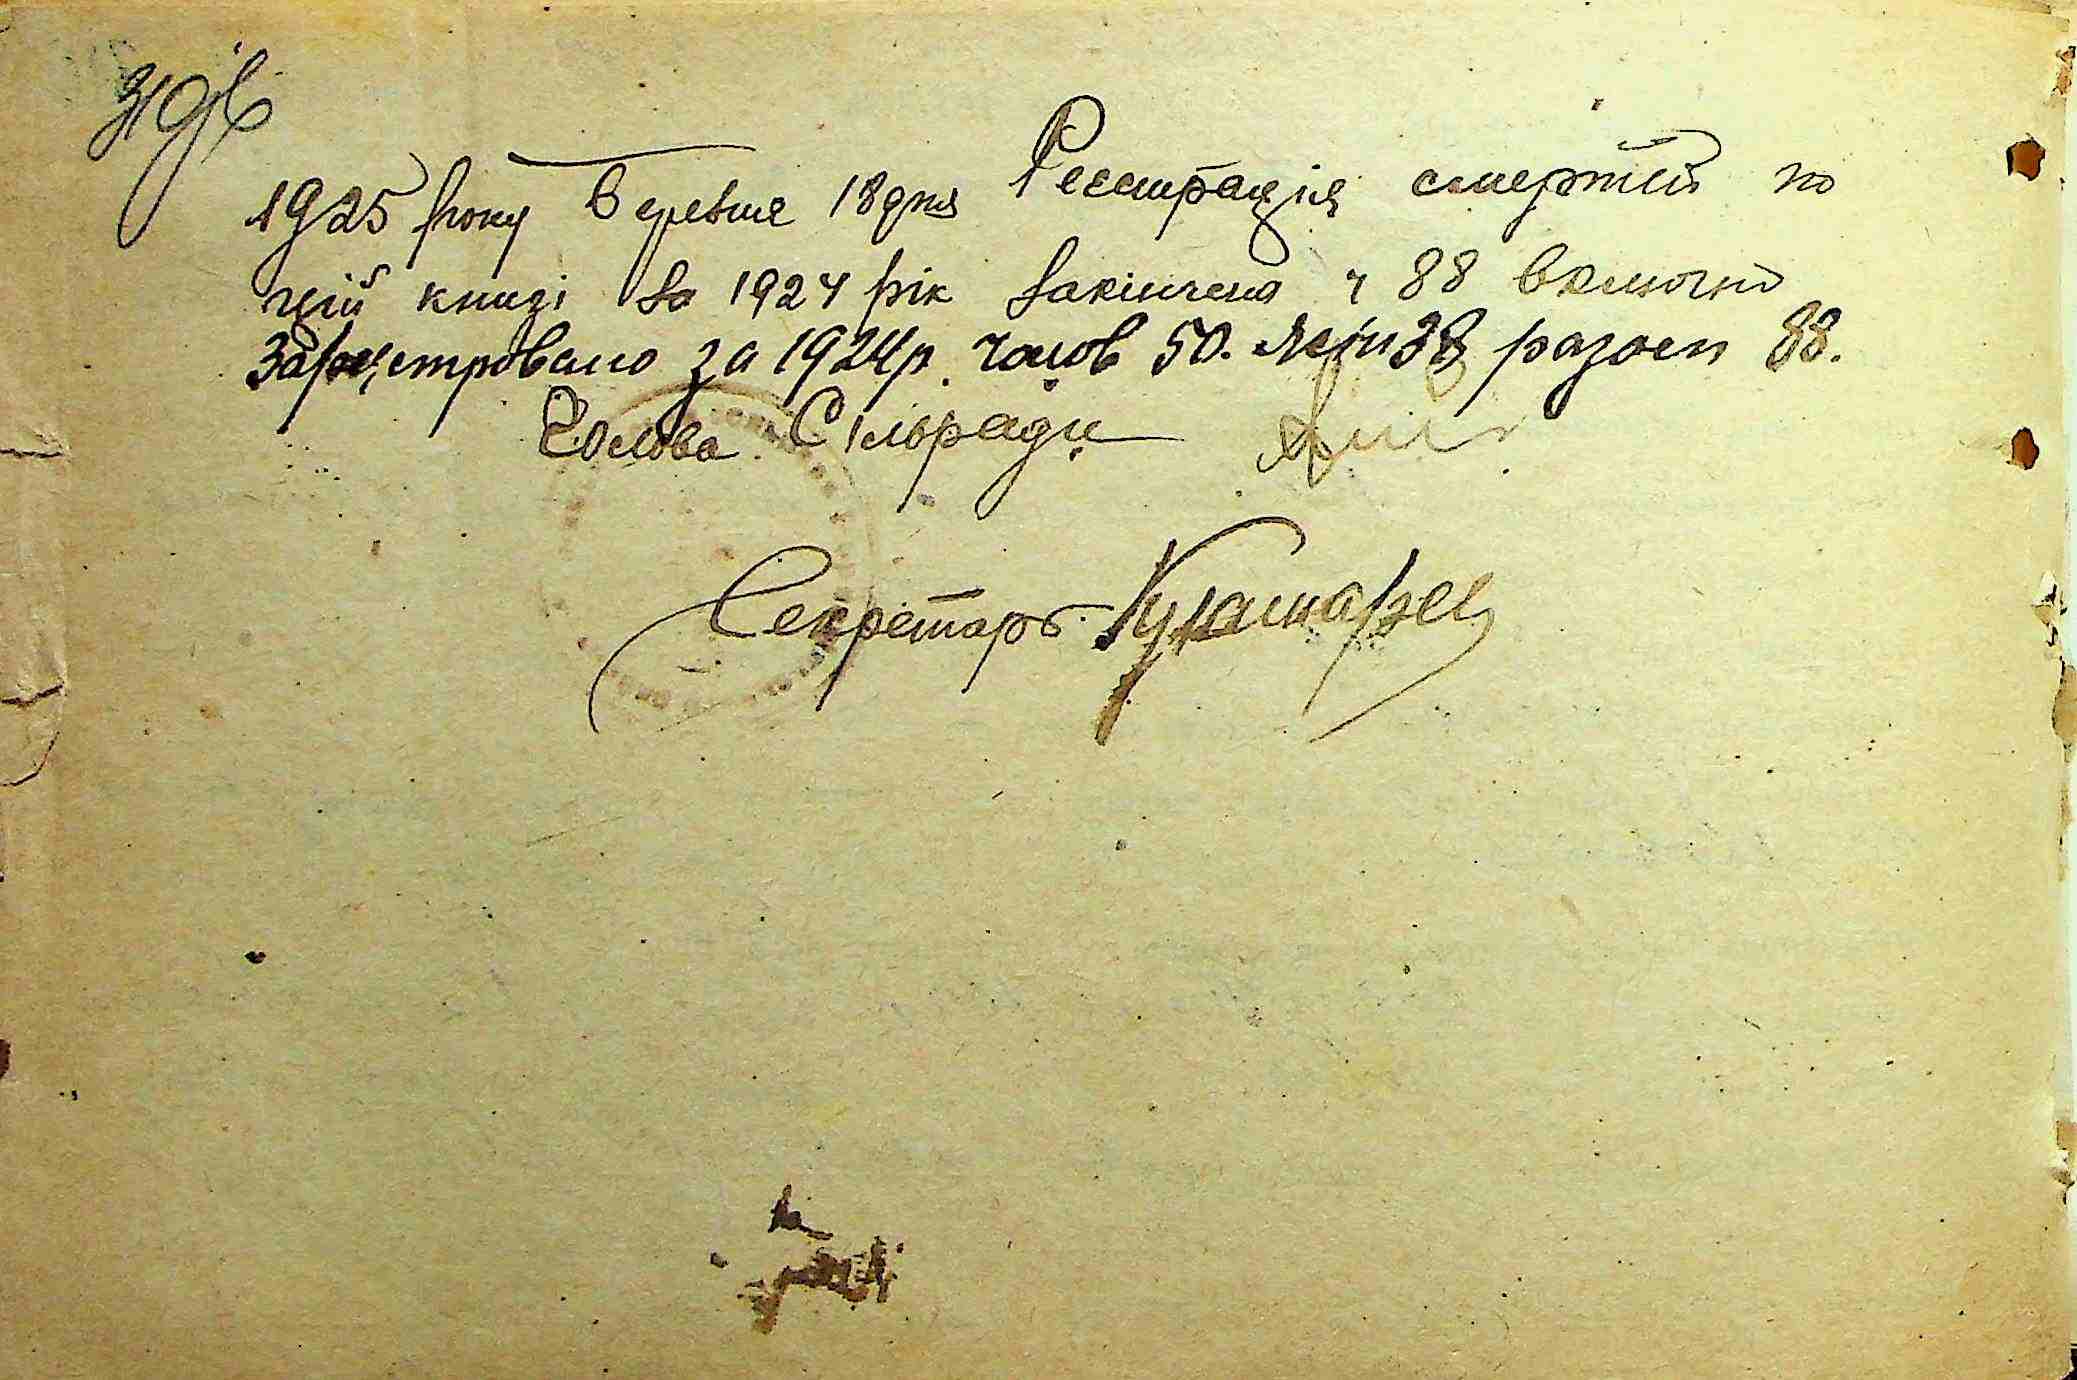 1925 року Березня 18 дня Реєстрація смертей по
цій книзі за 1924 рік закінчена ч 88 включно
Зареєстровано за 1924 р. чолов 50. жін 38 разом 88.
Голова Сільради
Секретарь